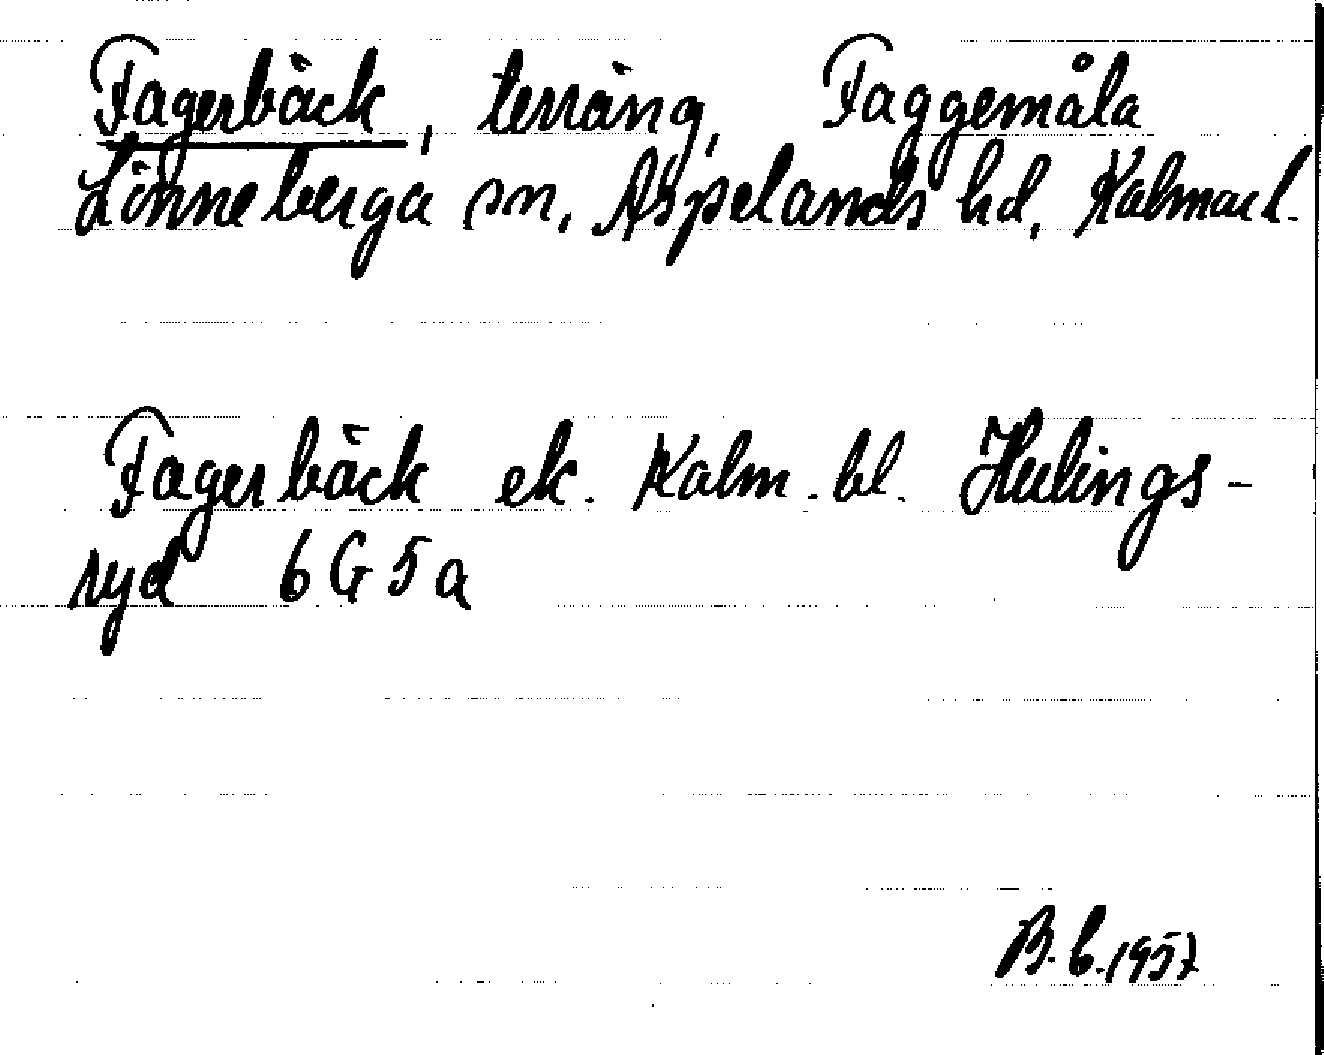 Fagerbäck, terräng, Faggemåla
Lönneberga sn, Aspelands hd, Kalmar l.
Fagerbäck ek. Kalm. bl. Hulings-
ryd 6 G 5 a
B. b. 1957